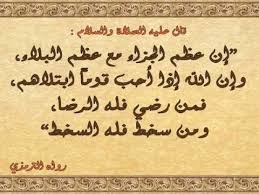 قال عليه الصلاة والسلام :
"إن عظم الجزاء مع عظم البلاء،
وإن الله إذا أحب قوماً ابتلاهم،
فمن رضي فله الرضا،
ومن سخط فله السخط"
رواه الترمذي